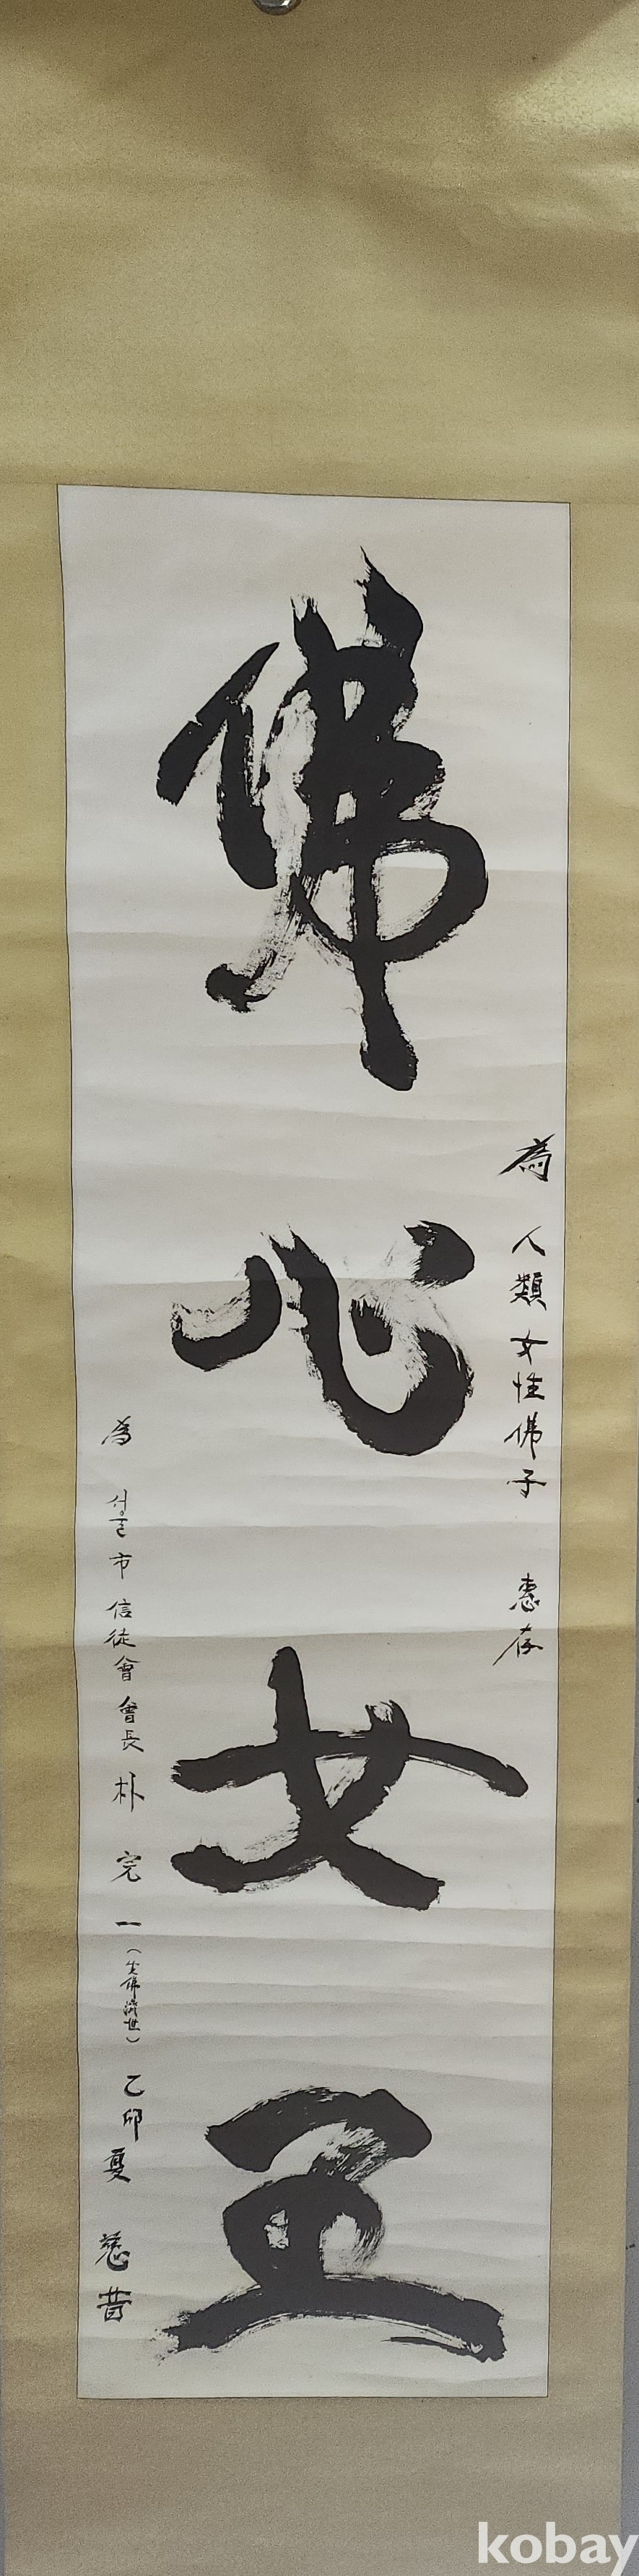 佛心女王
為 人類女性佛子 惠存
為 서울市信徒會會長 朴完一 (生佛濟世) 乙卯夏 慈昔
kobay